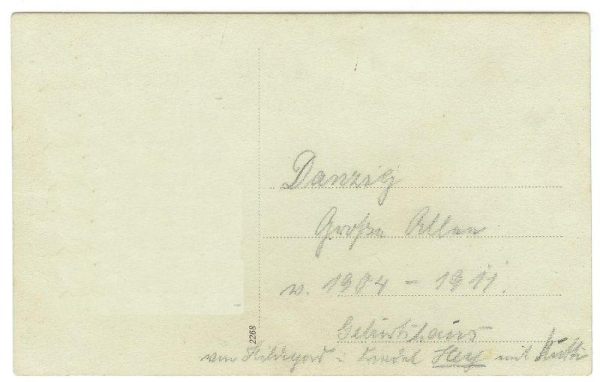 Danzig
Große Allee
v. 1904 - 1911.
Geburtshaus
von Hildegard u. Hey mit Mutti
2268